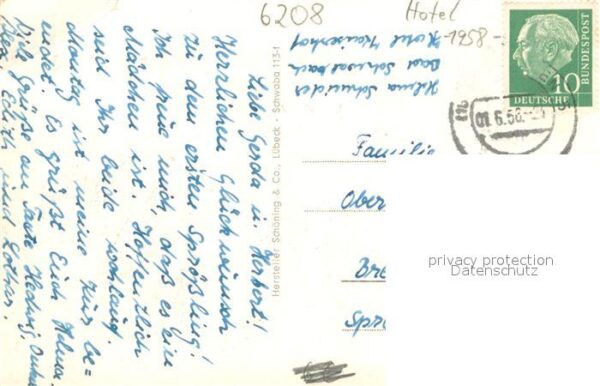 6208
Hotel
-1958-
Helma Schneider
Bad Schwalbach
Hotel Kaiserhof
DEUTSCHE
BUNDESPOST
10
01.6.58.
Liebe Gerda u. Herbert!
Herzlichen Glückwunsch
zu dem ersten Sprößling!
Ich freue mich, daß es ein
Mädchen ist. Hoffentlich
seid Ihr beide wohlauf.
Montag ist meine Kur be=
endet. Es grüßt Euch Helma.
Viele Grüße an Tante Hedwig, Onkel
Edith und Lothar.
Hersteller Schöning & Co., Lübeck - Schwaba 1154
Familie
Ober
Bre
Spr
privacy protection
Datenschutz